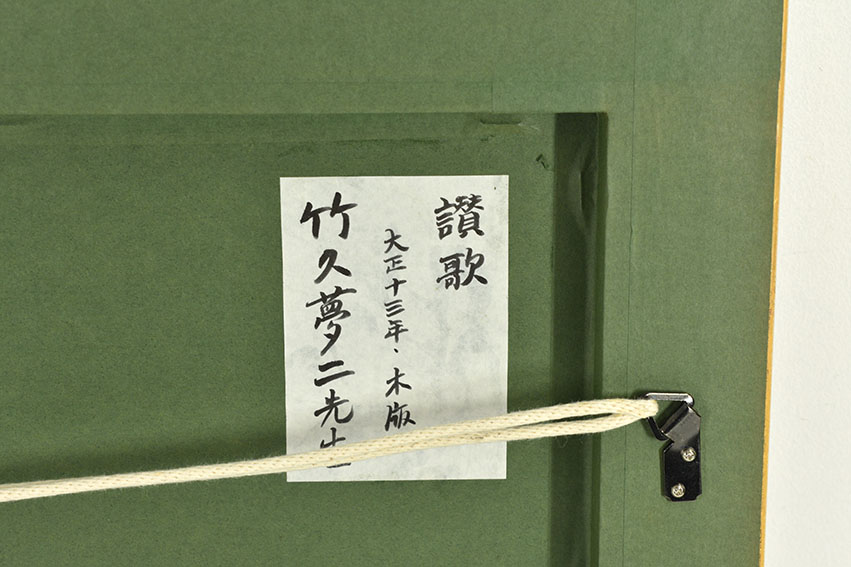 讃歌
大正十三年、木版
竹久夢二先生